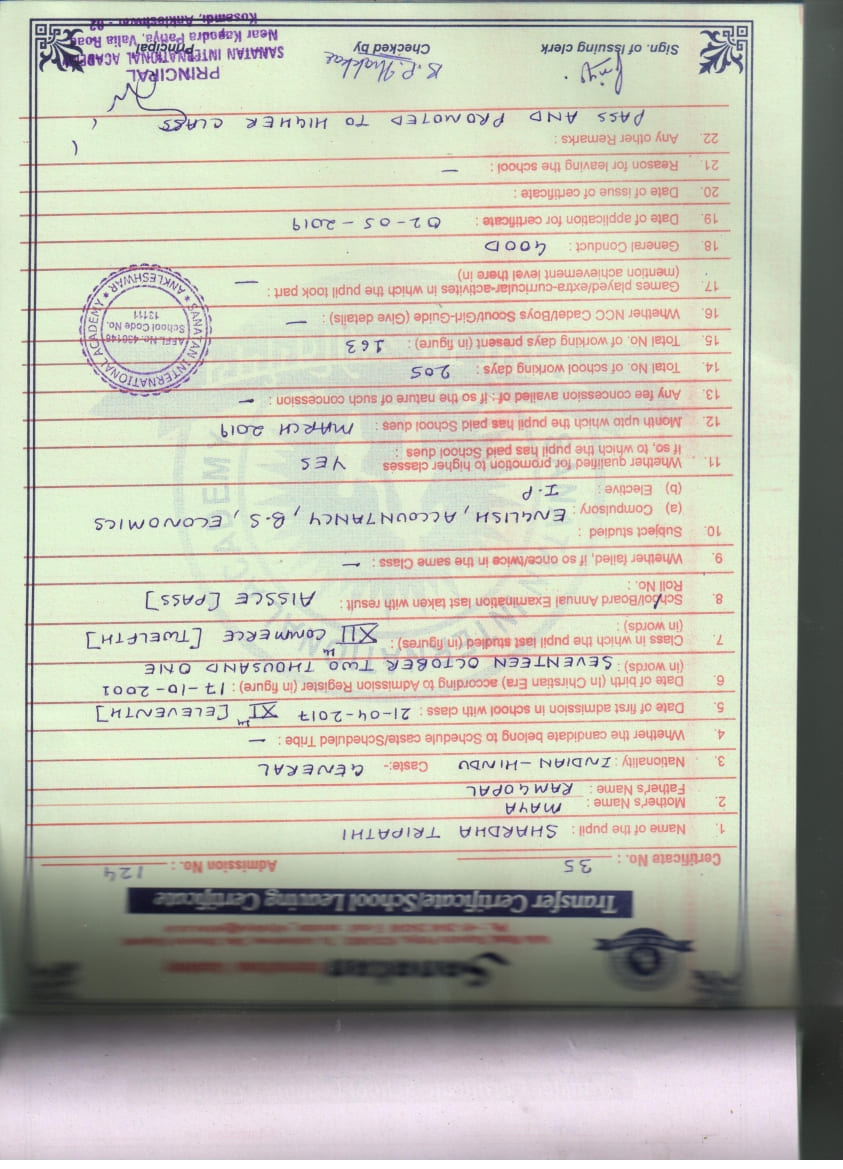 Transfer Certificate/School Leaving Certificate
Certificate No. : 35 Admission No. : 124
1. Name of the pupil : SHARDHA TRIPATHI
2. Mother's Name : MAYA
Father's Name : RAMGOPAL
3. Nationality : INDIAN-HINDU Caste:- GENERAL
4. Whether the candidate belong to Schedule caste/Scheduled Tribe : —
5. Date of first admission in school with class : 21-04-2017 XI th [ELEVENTH]
6. Date of birth (In Chirstian Era) according to Admission Register (in figure) : 17-10-2001
(in words) : SEVENTEEN OCTOBER TWO THOUSAND ONE
7. Class in which the pupil last studied (in figures) : XII th COMMERCE [TWELFTH]
(in words) :
8. School/Board Annual Examination last taken with result : AISSCE [PASS]
Roll No. :
9. Whether failed, if so once/twice in the same Class : —
10. Subject studied :
(a) Compulsory : ENGLISH, ACCOUNTANCY, B.S, ECONOMICS
(b) Elective : I.P
11. Whether qualified for promotion to higher classes YES
If so, to which the pupil has paid School dues :
12. Month upto which the pupil has paid School dues : MARCH 2019
13. Any fee concession availed of : if so the nature of such concession : —
14. Total No. of school working days : 205
15. Total No. of working days present (in figure) : 163
16. Whether NCC Cadet/Boys Scout/Girl-Guide (Give details) : —
17. Games played/extra-curricular-activites in which the pupil took part : —
(mention achievement level there in)
18. General Conduct : GOOD
19. Date of application for certificate : 02-05-2019
20. Date of issue of certificate :
21. Reason for leaving the school : —
22. Any other Remarks :
PASS AND PROMOTED TO HIGHER CLASS
Sign. of Issuing clerk Checked by Principal
PRINCIPAL
SANATAN INTERNATIONAL ACADEMY
Near Kapodra Patiya, Valia Road
Kosamdi, Ankleshwar - 02
SANATAN INTERNATIONAL ACADEMY
ANKLESHWAR
AFFI. No. 430146
School Code No.
13111